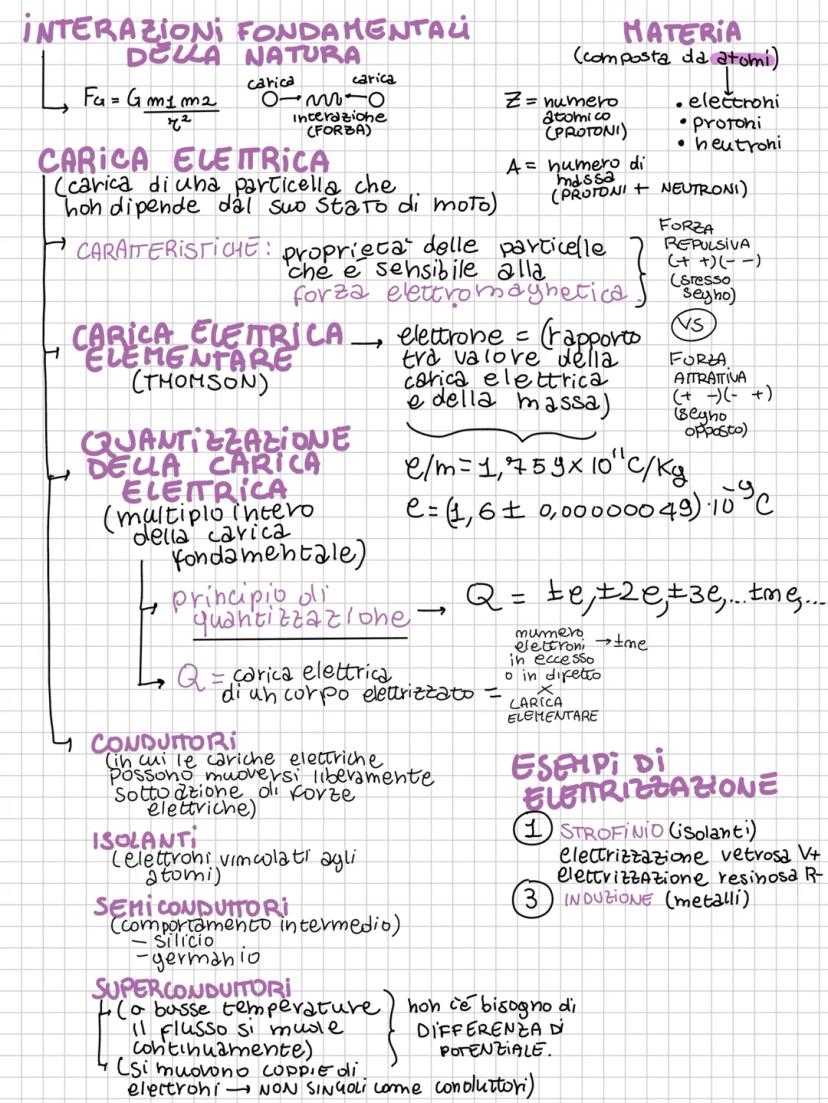 INTERAZIONI FONDAMENTALI
DELLA NATURA
FG = G m1 m2
r²
carica carica
interazione
(FORZA)
MATERIA
(composta da atomi)
• elettroni
• protoni
• neutroni
Z = numero
atomico
(PROTONI)
A = numero di
massa
(PROTONI + NEUTRONI)
CARICA ELETTRICA
(carica di una particella che
non dipende dal suo stato di moto)
CARATTERISTICHE: proprietà delle particelle
che è sensibile alla
forza elettromagnetica
FORZA
REPULSIVA
(+ +)(- -)
(stesso
segno)
VS
FORZA
ATTRATTIVA
(+ -)(- +)
(segno
opposto)
CARICA ELETTRICA
ELEMENTARE
(THOMSON)
→ elettrone = (rapporto
tra valore della
carica elettrica
e della massa)
e/m = 1,759 x 10¹¹ C/Kg
e = (1,6 ± 0,00000049) · 10⁻⁹ C
QUANTIZZAZIONE
DELLA CARICA
ELETTRICA
(multiplo intero
della carica
fondamentale)
principio di
quantizzazione → Q = ±e, ±2e, ±3e, ... ±me, ...
Q = carica elettrica
di un corpo elettrizzato =
numero
elettroni → ±me
in eccesso
o in difetto
x
CARICA
ELEMENTARE
CONDUTTORI
(in cui le cariche elettriche
possono muoversi liberamente
sotto azione di forze
elettriche)
ISOLANTI
(elettroni vincolati agli
atomi)
SEMICONDUTTORI
(comportamento intermedio)
- silicio
- germanio
SUPERCONDUTTORI
(a basse temperature
il flusso si muove
continuamente)
(si muovono coppie di
elettroni → NON SINGOLI come conduttori)
non c'è bisogno di
DIFFERENZA DI
POTENZIALE.
ESEMPI DI
ELETTRIZZAZIONE
1 STROFINIO (isolanti)
elettrizzazione vetrosa V+
elettrizzazione resinosa R-
3 INDUZIONE (metalli)